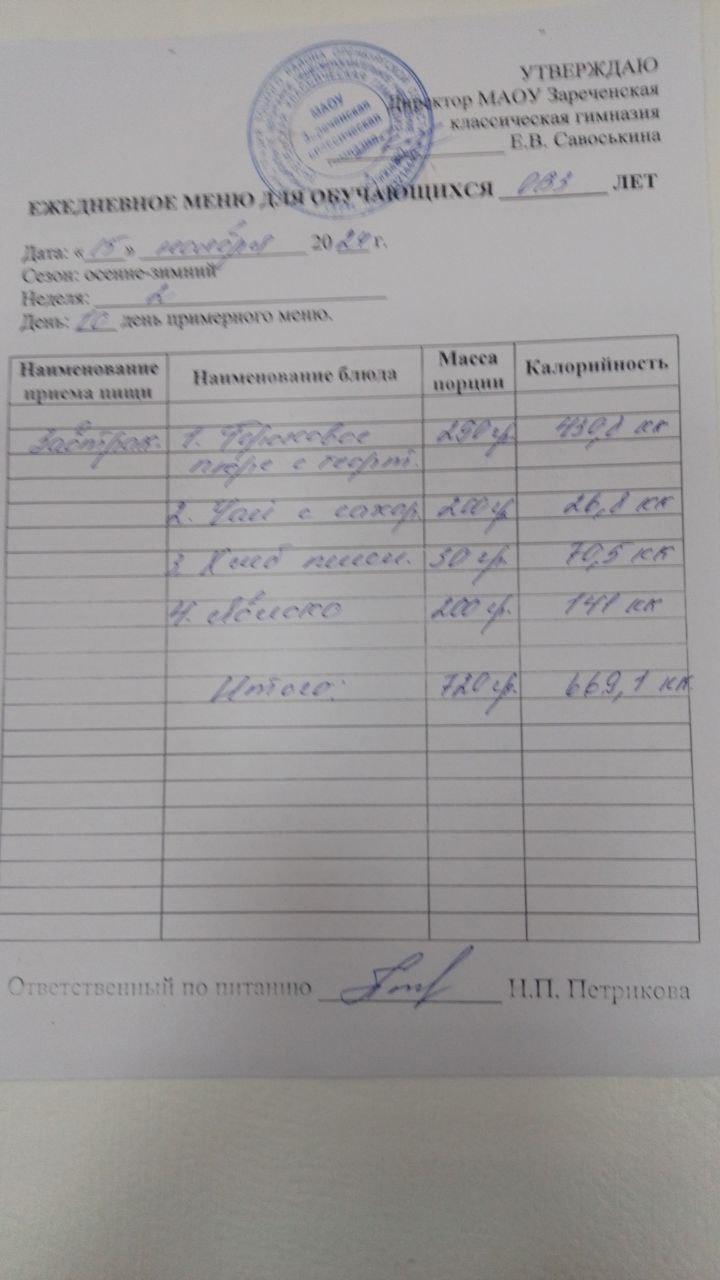 УТВЕРЖДАЮ
Директор МАОУ Зареченская
классическая гимназия
Е.В. Савоськина
МАОУ
Зареченская
классическая
гимназия
ЕЖЕДНЕВНОЕ МЕНЮ ДЛЯ ОБУЧАЮЩИХСЯ ОВЗ ЛЕТ
Дата: «15» ноября 2024 г.
Сезон: осенне-зимний
Неделя: 2
День: 10 день примерного меню.
Наименование приема пищи Наименование блюда Масса порции Калорийность
Завтрак. 1. Гороховое 290 гр. 430,8 кк
пюре с
2. Чай с сахар. 200 гр. 26,8 кк
3. Хлеб пшен. 30 гр. 70,5 кк
4. Яблоко 200 гр. 141 кк
Итого: 720 гр. 669,1 кк
Ответственный по питанию Н.П. Петрикова